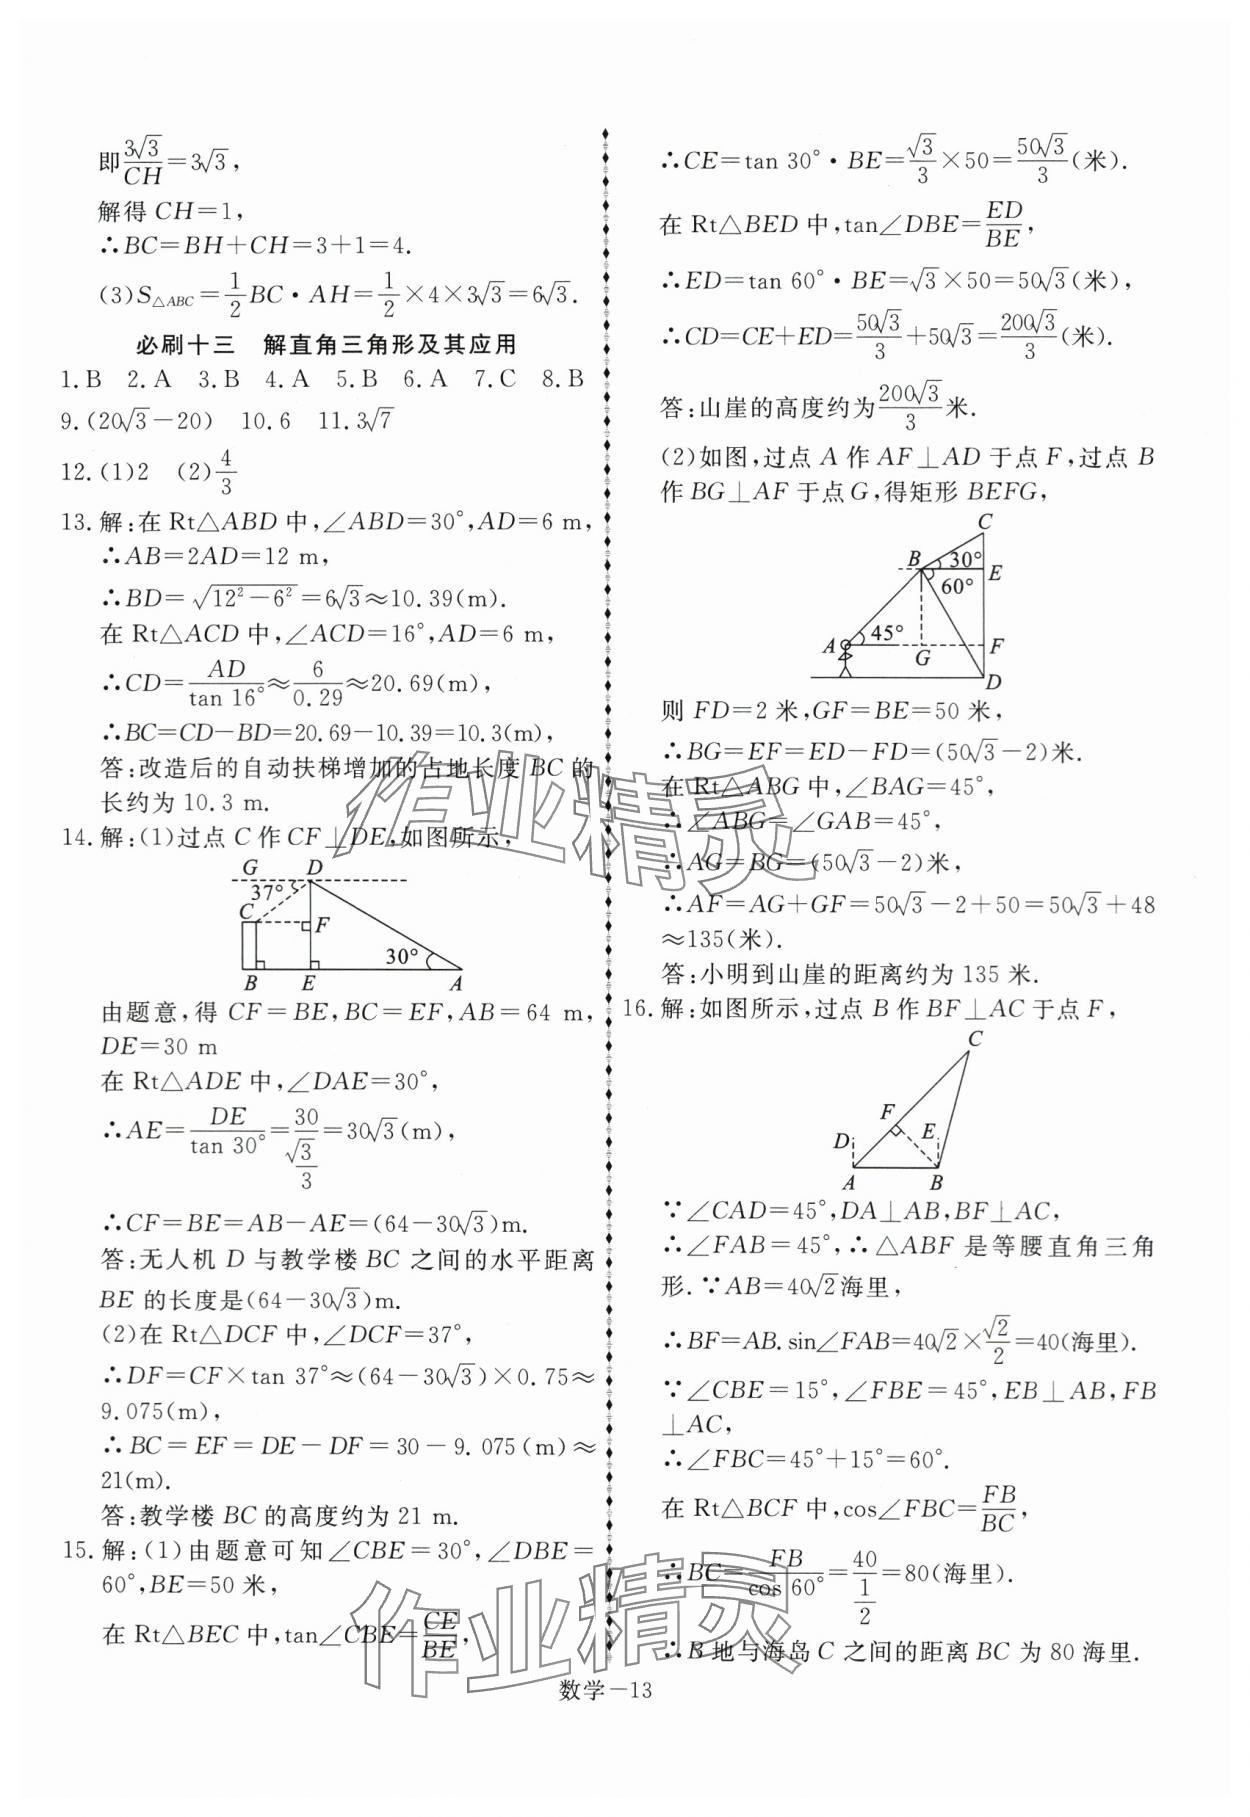 即3√3/CH=3√3,
解得 CH=1,
∴BC=BH+CH=3+1=4.
(3)S△ABC=1/2BC·AH=1/2×4×3√3=6√3.
必刷十三 解直角三角形及其应用
1.B 2.A 3.B 4.A 5.B 6.A 7.C 8.B
9.(20√3-20) 10.6 11.3√7
12.(1)2 (2)4/3
13.解:在 Rt△ABD 中,∠ABD=30°,AD=6 m,
∴AB=2AD=12 m,
∴BD=√(12²-6²)=6√3≈10.39(m).
在 Rt△ACD 中,∠ACD=16°,AD=6 m,
∴CD=AD/tan 16°≈6/0.29≈20.69(m),
∴BC=CD-BD=20.69-10.39=10.3(m),
答:改造后的自动扶梯增加的占地长度 BC 的
长约为 10.3 m.
14.解:(1)过点 C 作 CF⊥DE,如图所示,
G D
37°
C
F
30°
B E A
由题意,得 CF=BE,BC=EF,AB=64 m,
DE=30 m
在 Rt△ADE 中,∠DAE=30°,
∴AE=DE/tan 30°=30/(√3/3)=30√3(m),
∴CF=BE=AB-AE=(64-30√3)m.
答:无人机 D 与教学楼 BC 之间的水平距离
BE 的长度是(64-30√3)m.
(2)在 Rt△DCF 中,∠DCF=37°,
∴DF=CF×tan 37°≈(64-30√3)×0.75≈
9.075(m),
∴BC=EF=DE-DF=30-9.075(m)≈
21(m).
答:教学楼 BC 的高度约为 21 m.
15.解:(1)由题意可知∠CBE=30°,∠DBE=
60°,BE=50 米,
在 Rt△BEC 中,tan∠CBE=CE/BE,
∴CE=tan 30°·BE=√3/3×50=50√3/3(米).
在 Rt△BED 中,tan∠DBE=ED/BE,
∴ED=tan 60°·BE=√3×50=50√3(米),
∴CD=CE+ED=50√3/3+50√3=200√3/3(米).
答:山崖的高度约为200√3/3米.
(2)如图,过点 A 作 AF⊥AD 于点 F,过点 B
作 BG⊥AF 于点 G,得矩形 BEFG,
C
B 30°
E
60°
A 45°
G F
D
则 FD=2 米,GF=BE=50 米,
∴BG=EF=ED-FD=(50√3-2)米.
在 Rt△ABG 中,∠BAG=45°,
∴∠ABG=∠GAB=45°,
∴AG=BG=(50√3-2)米,
∴AF=AG+GF=50√3-2+50=50√3+48
≈135(米).
答:小明到山崖的距离约为 135 米.
16.解:如图所示,过点 B 作 BF⊥AC 于点 F,
C
F
D E
A B
∵∠CAD=45°,DA⊥AB,BF⊥AC,
∴∠FAB=45°,∴△ABF 是等腰直角三角
形.∵AB=40√2海里,
∴BF=AB.sin∠FAB=40√2×√2/2=40(海里).
∵∠CBE=15°,∠FBE=45°,EB⊥AB,FB
⊥AC,
∴∠FBC=45°+15°=60°.
在 Rt△BCF 中,cos∠FBC=FB/BC,
∴BC=FB/cos 60°=40/(1/2)=80(海里).
∴B 地与海岛 C 之间的距离 BC 为 80 海里.
数学-13
作业精灵
作业精灵